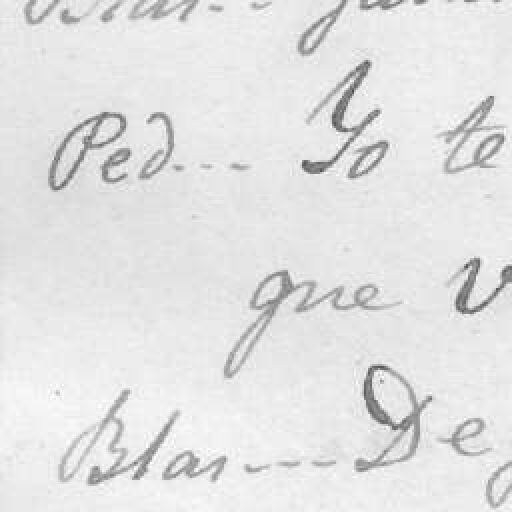 Blas...
Ped... Yo te
que v
Blas.... De